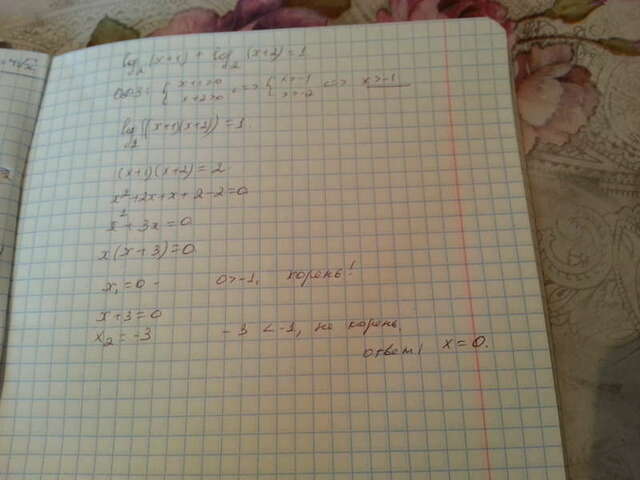 log₂(x+1) + log₂(x+2)=1
ОДЗ: { x+1>0 x+2>0 <=> { x>-1 x>-2 <=> x>-1
log₂((x+1)(x+2))=1
(x+1)(x+2)=2
x²+2x+x+2-2=0
x²+3x=0
x(x+3)=0
x₁=0 - 0>-1, корень!
x+3=0
x₂=-3 -3 <-1, не корень.
ответ: x=0.